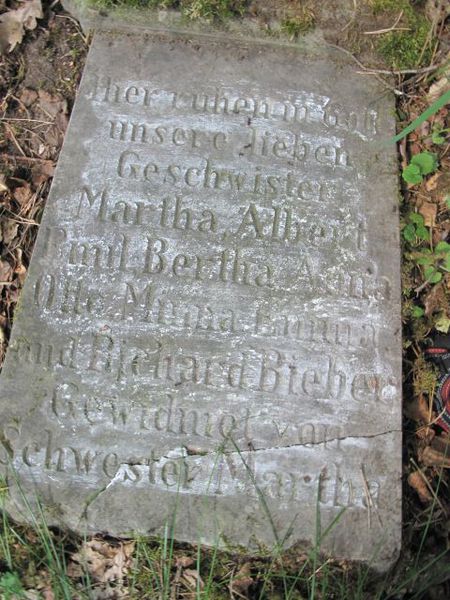 Hier ruhen in Gott
unsere lieben
Geschwister
Martha, Albert
Emil, Bertha, Anna
Otto, Minna, Emma,
und Richard Bieber
Gewidmet von
Schwester Martha